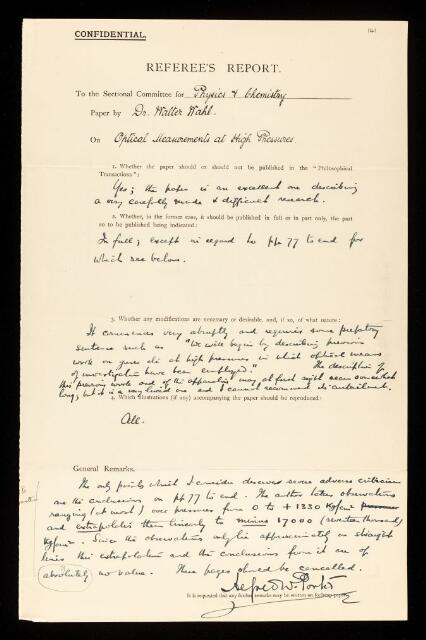 CONFIDENTIAL.
REFEREE'S REPORT.
To the Sectional Committee for Physics & Chemistry
Paper by Dr. Walter Wahl.
On Optical Measurements at High Pressures.
1. Whether the paper should or should not be published in the "Philosophical
Transactions":
Yes; the paper is an excellent one describing
a very carefully made & difficult research.
2. Whether, in the former case, it should be published in full or in part only, the part
so to be published being indicated:
In full; except in regard to pp 77 to end for
which see below.
3. Whether any modifications are necessary or desirable, and, if so, of what nature:
It commences very abruptly and requires some prefatory
sentence such as "We will begin by describing previous
work on gases etc at high pressures in which optical means
of investigation have been employed." The description of
this previous work and of the apparatus may at first sight seem somewhat
long; but it is a very lucid one and I cannot recommend its curtailment.
4. Which illustrations (if any) accompanying the paper should be reproduced:
All.
General Remarks.
The only points which I consider deserves severe adverse criticism
are the conclusions on pp 77 to end. The author takes observations
ranging (at most) over pressures from 0 to + 1330 Kg/cm²
and extrapolates them linearly to minus 17000 (seventeen thousand)
Kg/cm². Since the observations only lie approximately on straight
lines this extrapolation and the conclusions from it are of
absolutely no value. These pages should be cancelled.
Alfred W. Porter
It is requested that any further remarks may be written on foolscap paper.